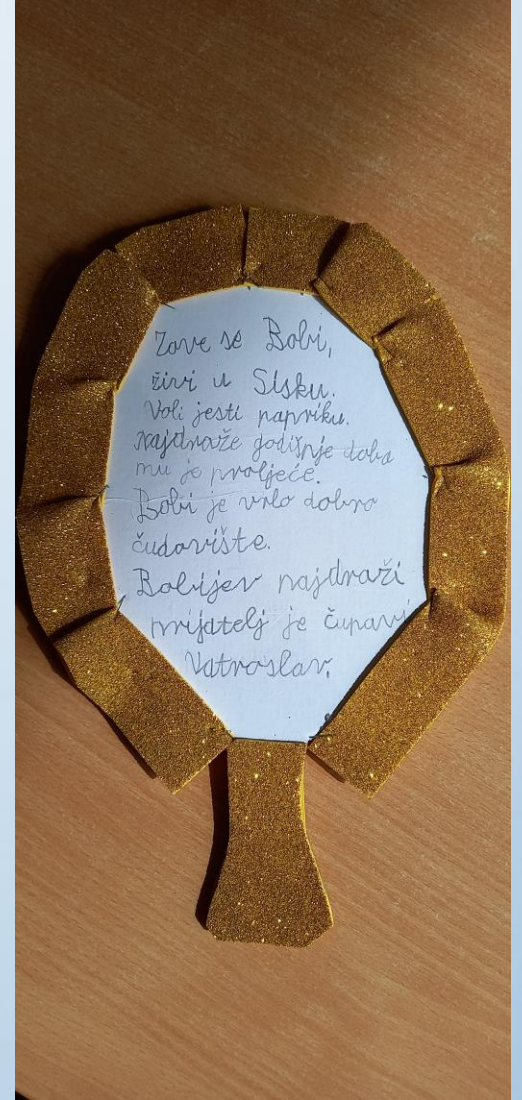 Zove se Bobi,
živi u Sisku.
Voli jesti papriku.
Najdraže godišnje doba
mu je proljeće.
Bobi je vrlo dobro
čudovište.
Bobijev najdraži
prijatelj je čupavi
Vatroslav.